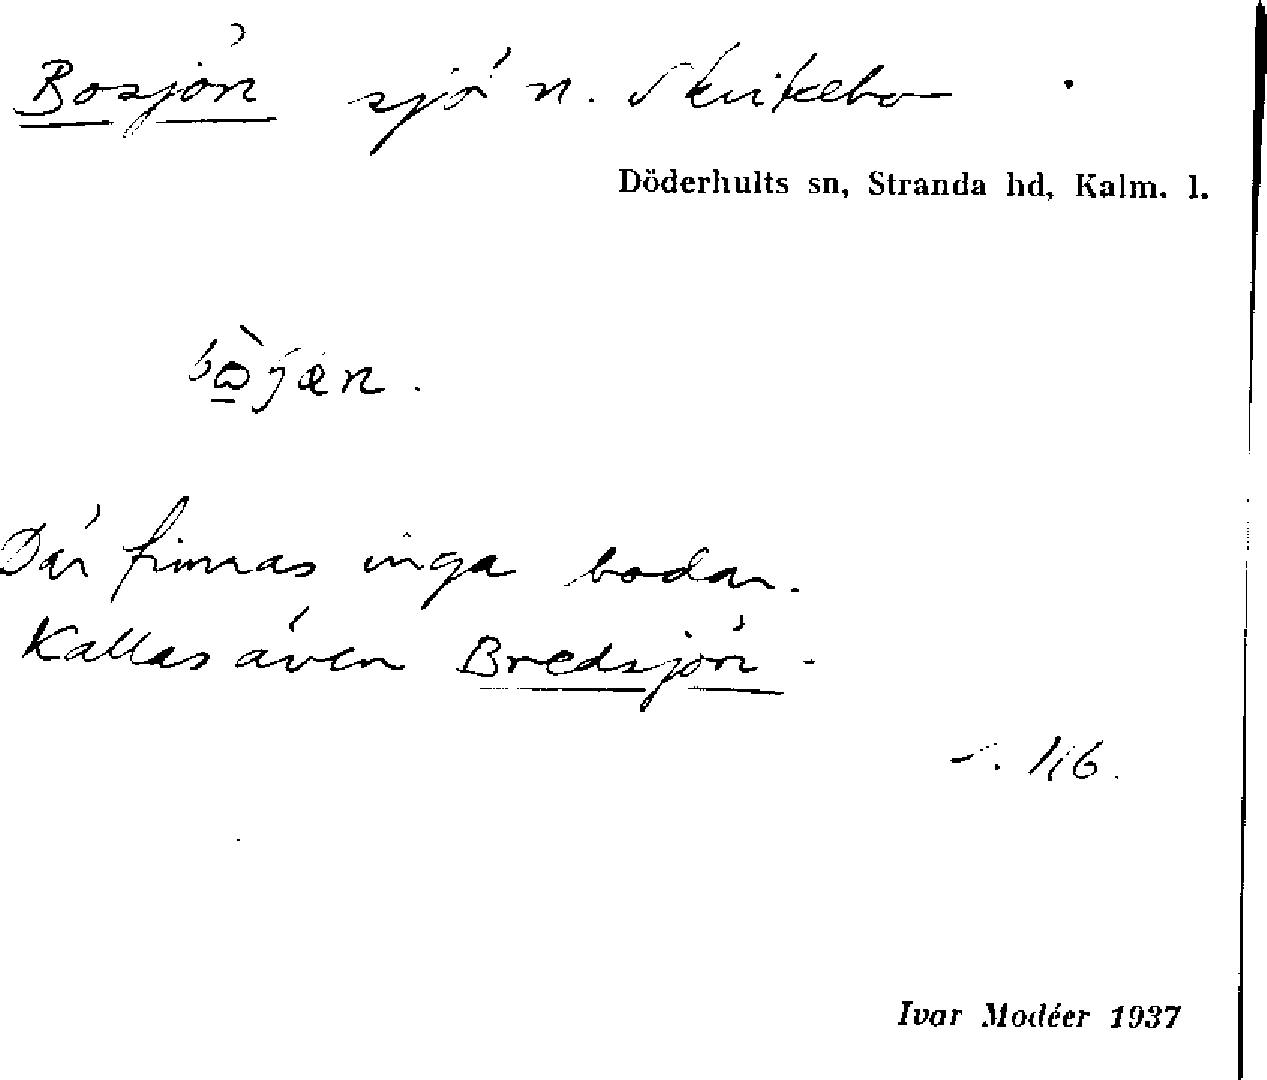 Bosjön sjö n. Skvikebo
Döderhults sn, Stranda hd, Kalm. l.
Där finnas inga bodar.
Kallas även Bredsjön.
Ivar Modéer 1937